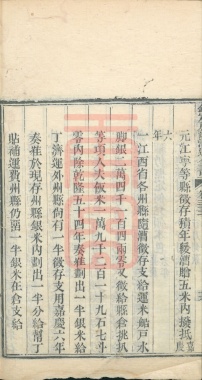 元江寧等縣徵存積年輕齎贈五米內撥抵嘉慶
六年
一江西省各州縣隨漕徵存支給運米船戶水
腳銀二萬四千一百四兩零又徵給縣倉挑扒
等項人夫飯米一萬九千二百一十九石七斗
零內除乾隆五十四年奏准劃出一半銀米給
丁濟運外州縣尚有一半徵存支用嘉慶六年
奏准於現存州縣銀米內劃出一半分給幫丁
貼補運費州縣仍留一半銀米在倉支給